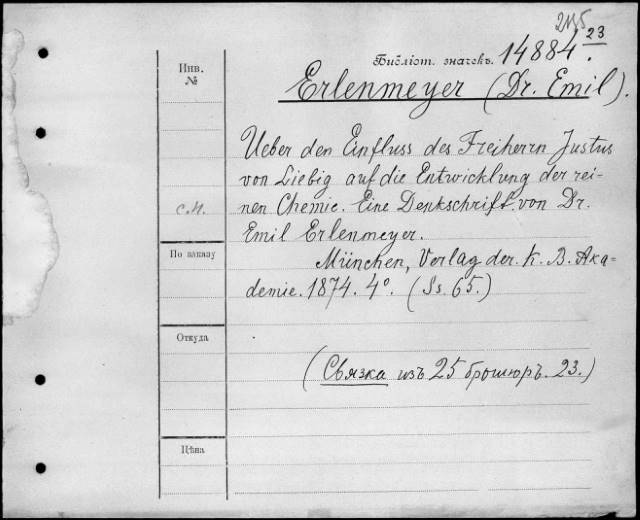 Инв.
№
Библіот. значекъ. 14884.23
Erlenmeyer (Dr. Emil).
Ueber den Einfluss des Freiherrn Justus
von Liebig auf die Entwicklung der rei-
nen Chemie. Eine Denkschrift von Dr.
Emil Erlenmeyer.
München, Verlag der k. B. Aka-
demie. 1874. 4º. (Ss. 65.)
(Связка изъ 25 брошюръ. 23.)
По заказу
Откуда
Цѣна